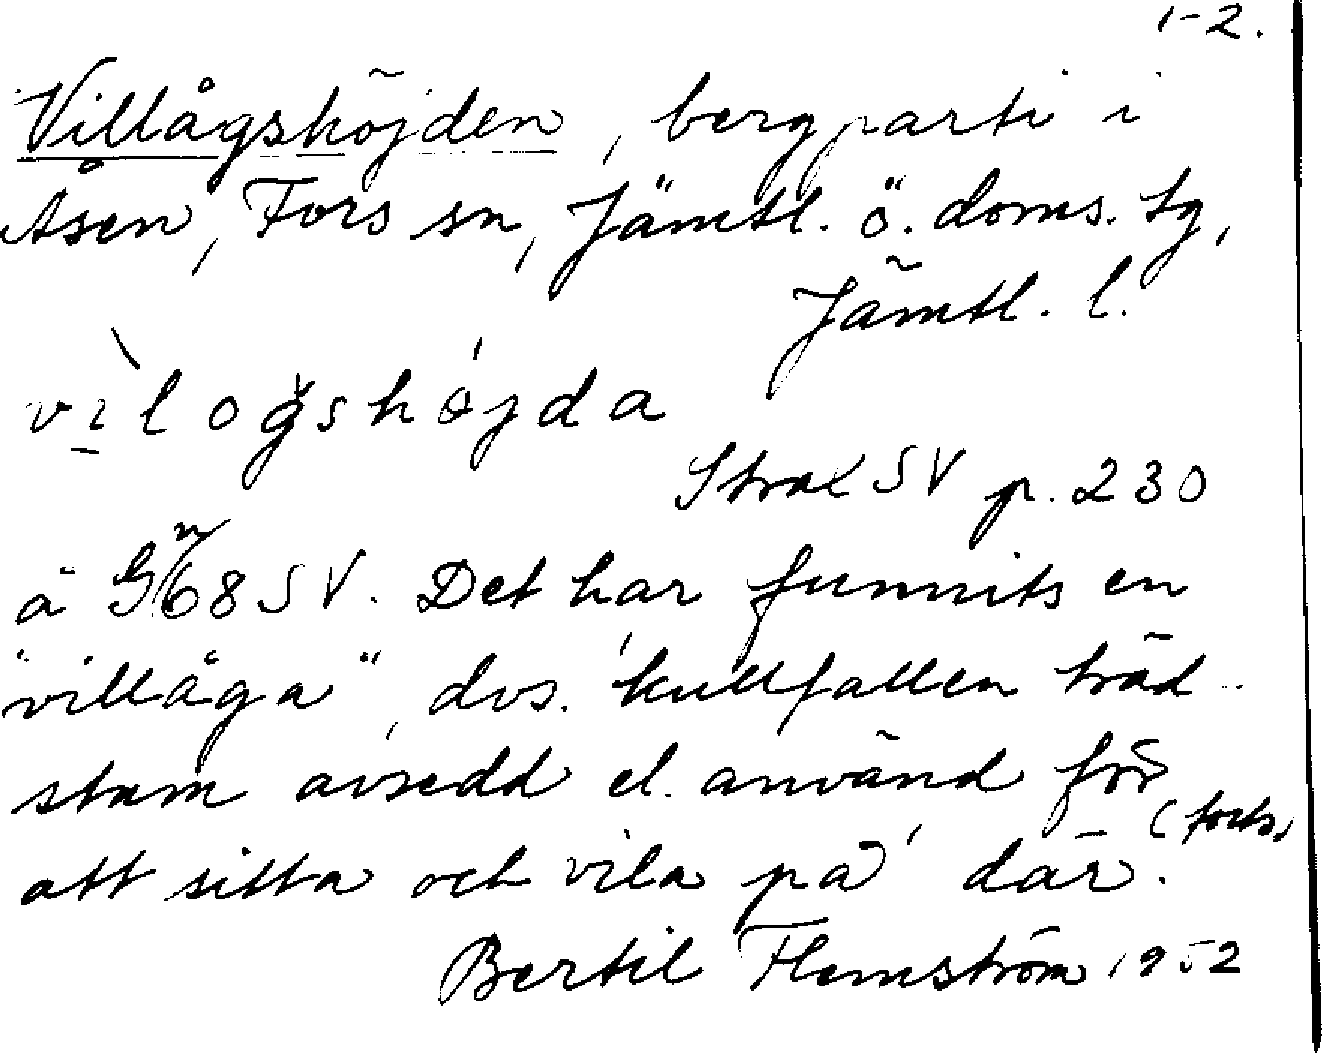 1-2.
Villågshöjden, bergparti i
Åsen, Fors sn, Jämtl. ö. doms. tg,
Jämtl. l.
vìlogshöjda
Strax SV p. 230
å Gm68SV. Det har funnits en
"villåga", dvs. 'kullfallen träd-
stam avsedd el. använd för
(forts.)
att sitta och vila på' där.
Bertil Flemström 1952